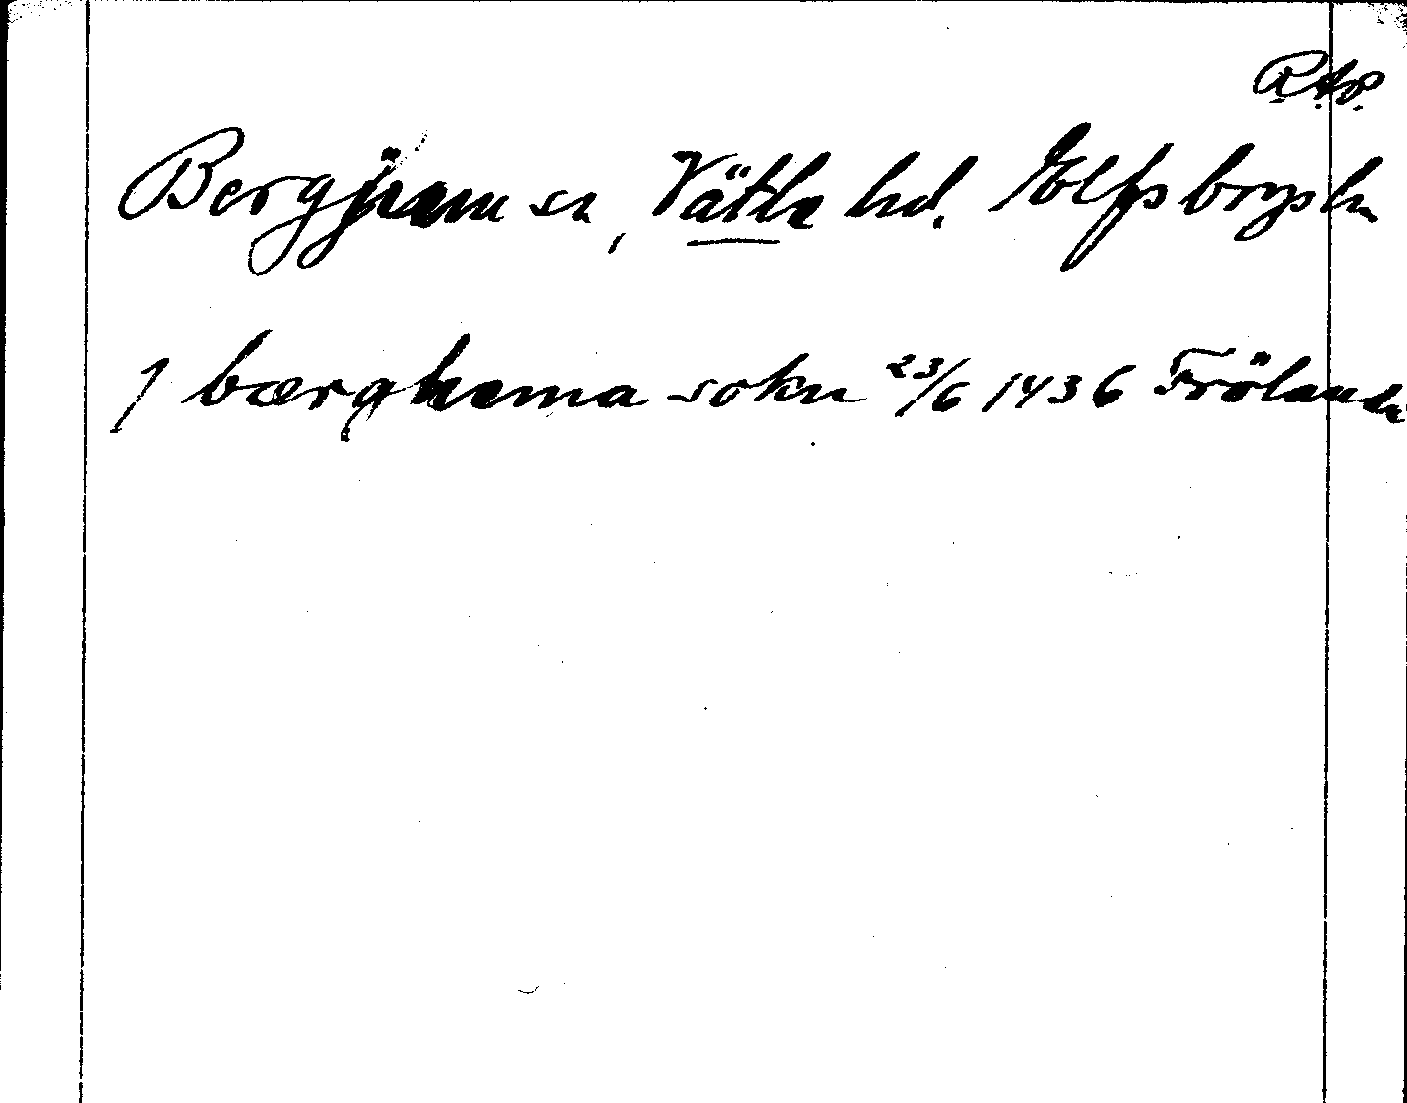 R.A.P.
Bergjum sn, Vättle hd. Elfsborgs ln
J bærghema sokn 23/6 1436 Frölanda